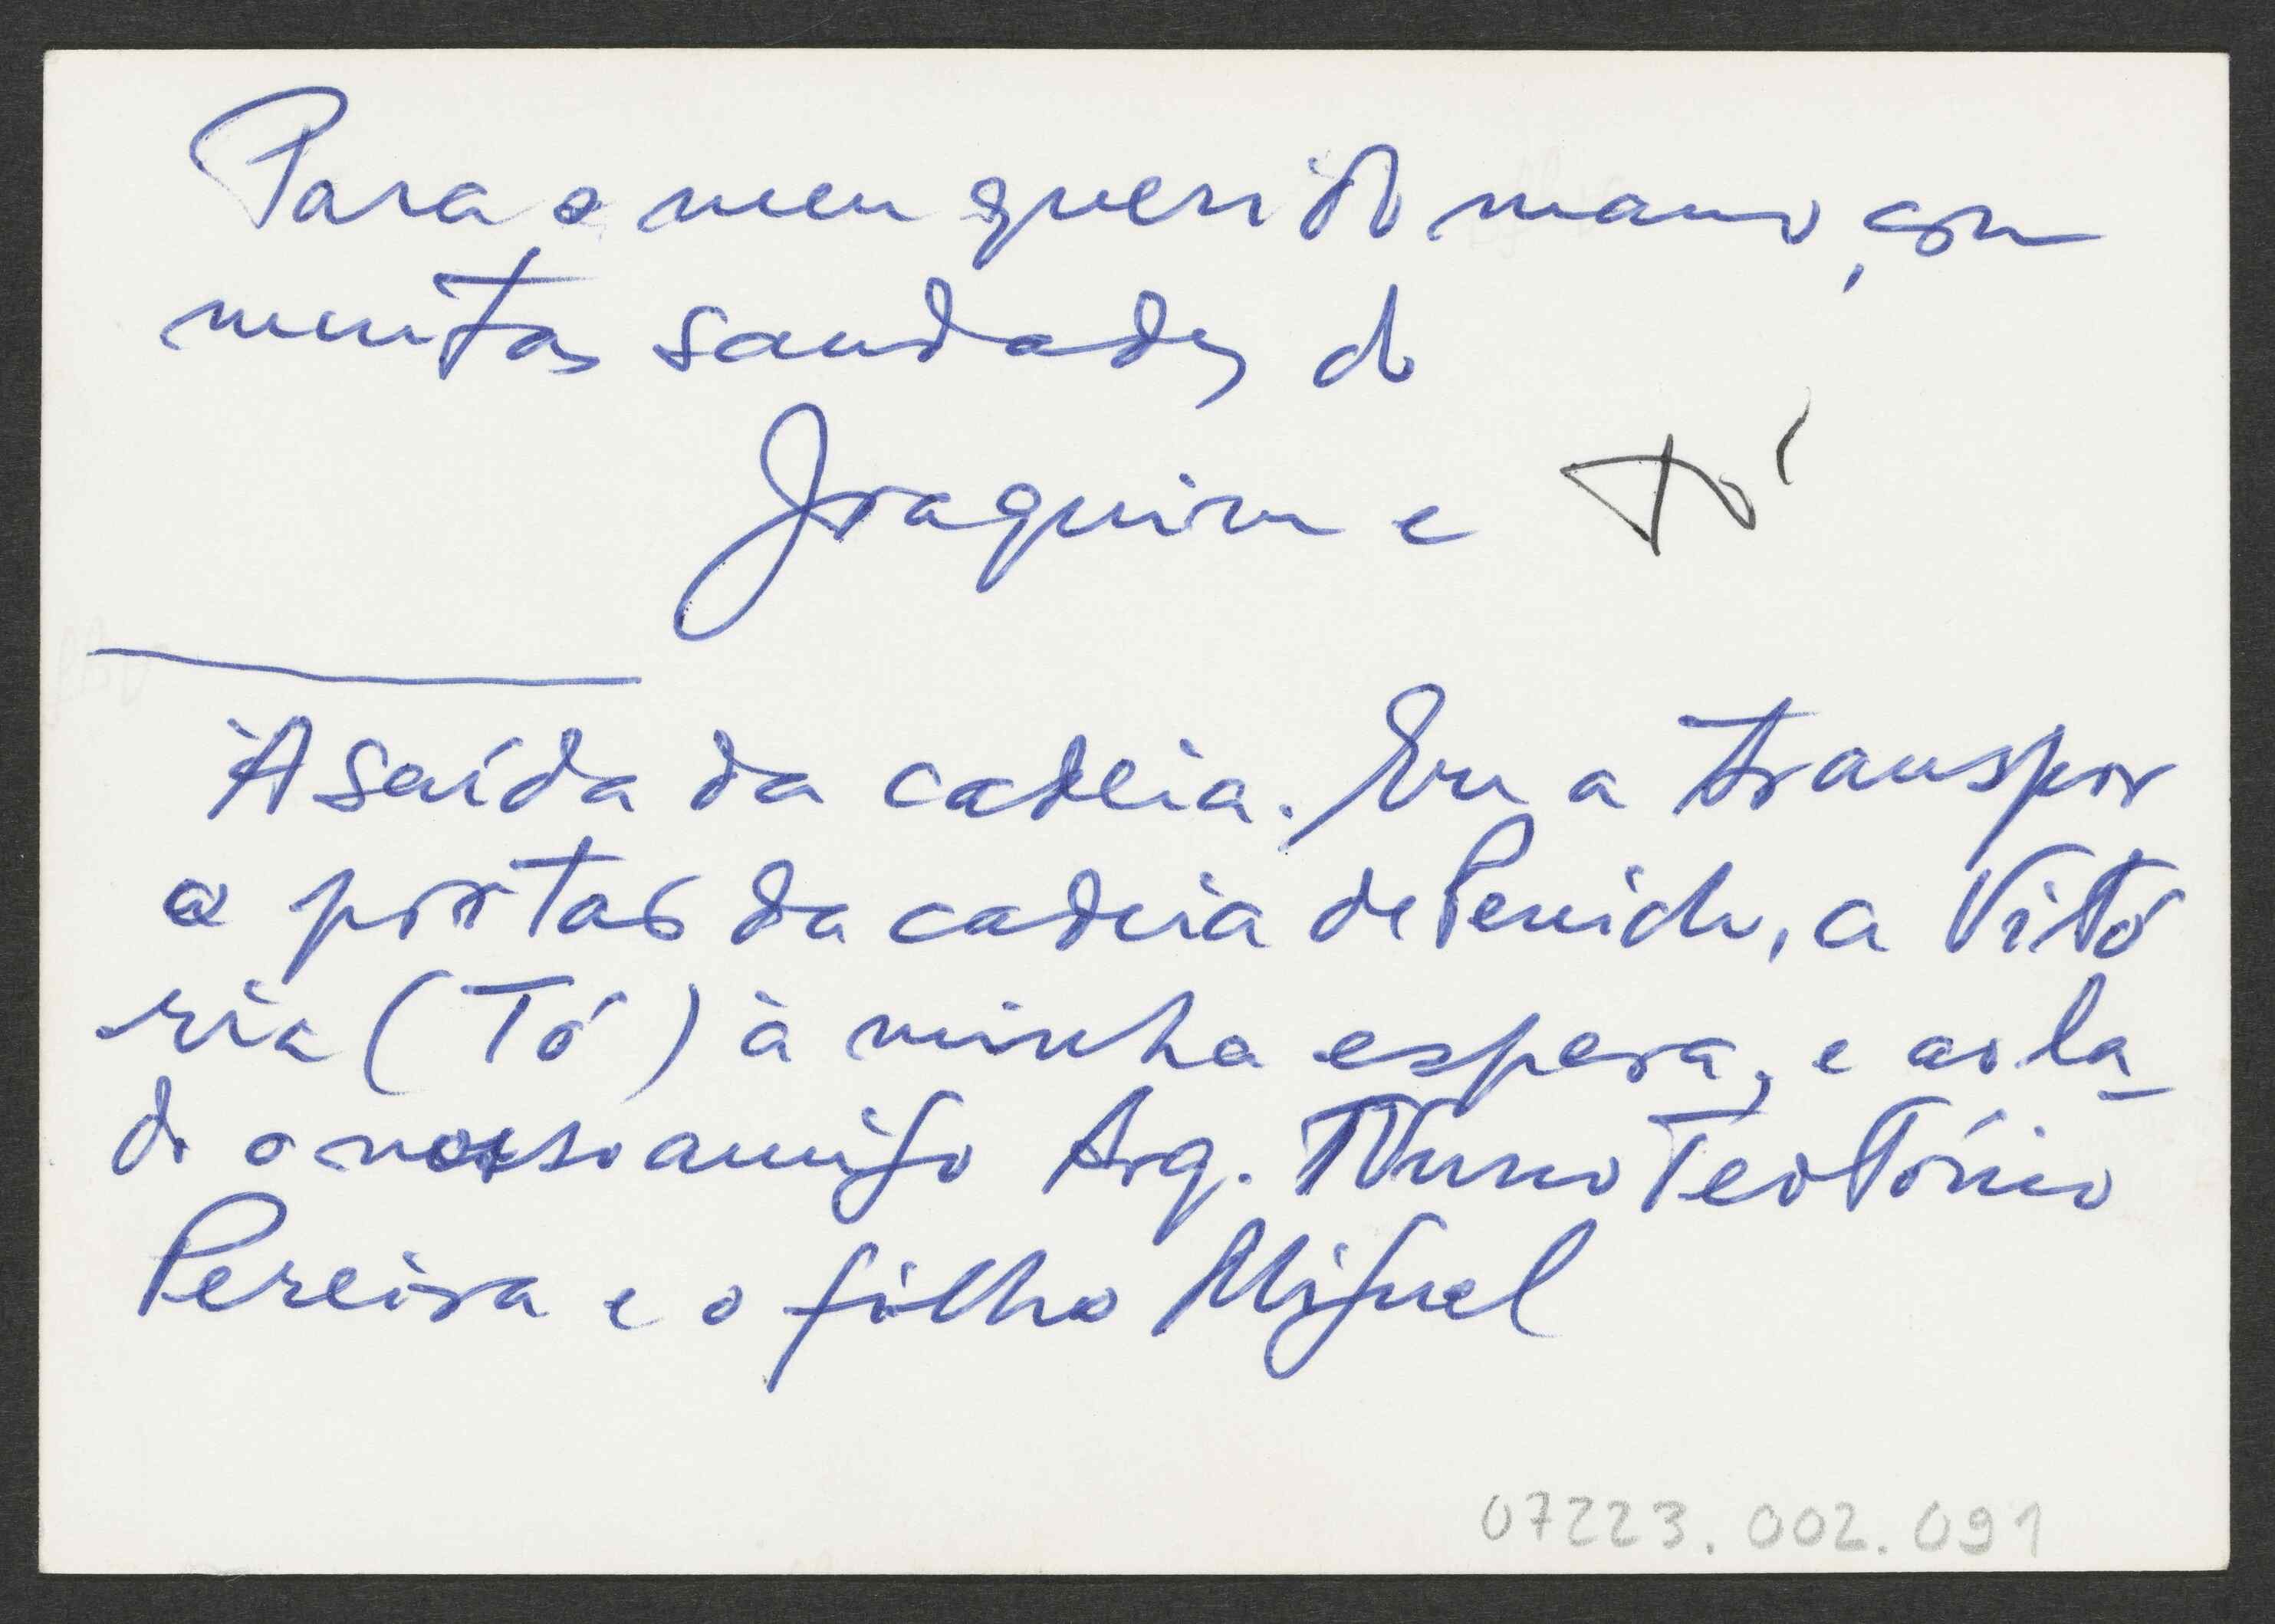 Para o meu querido mano, com
muitas saudades do
Joaquim e Tó
À saída da cadeia. Eu a transpor
as portas da cadeia de Peniche, a Vitó
ria (Tó) à minha espera, e ao la-
do o nosso amigo Arq. Nuno Teotónio
Pereira e o filho Miguel
07223.002.091